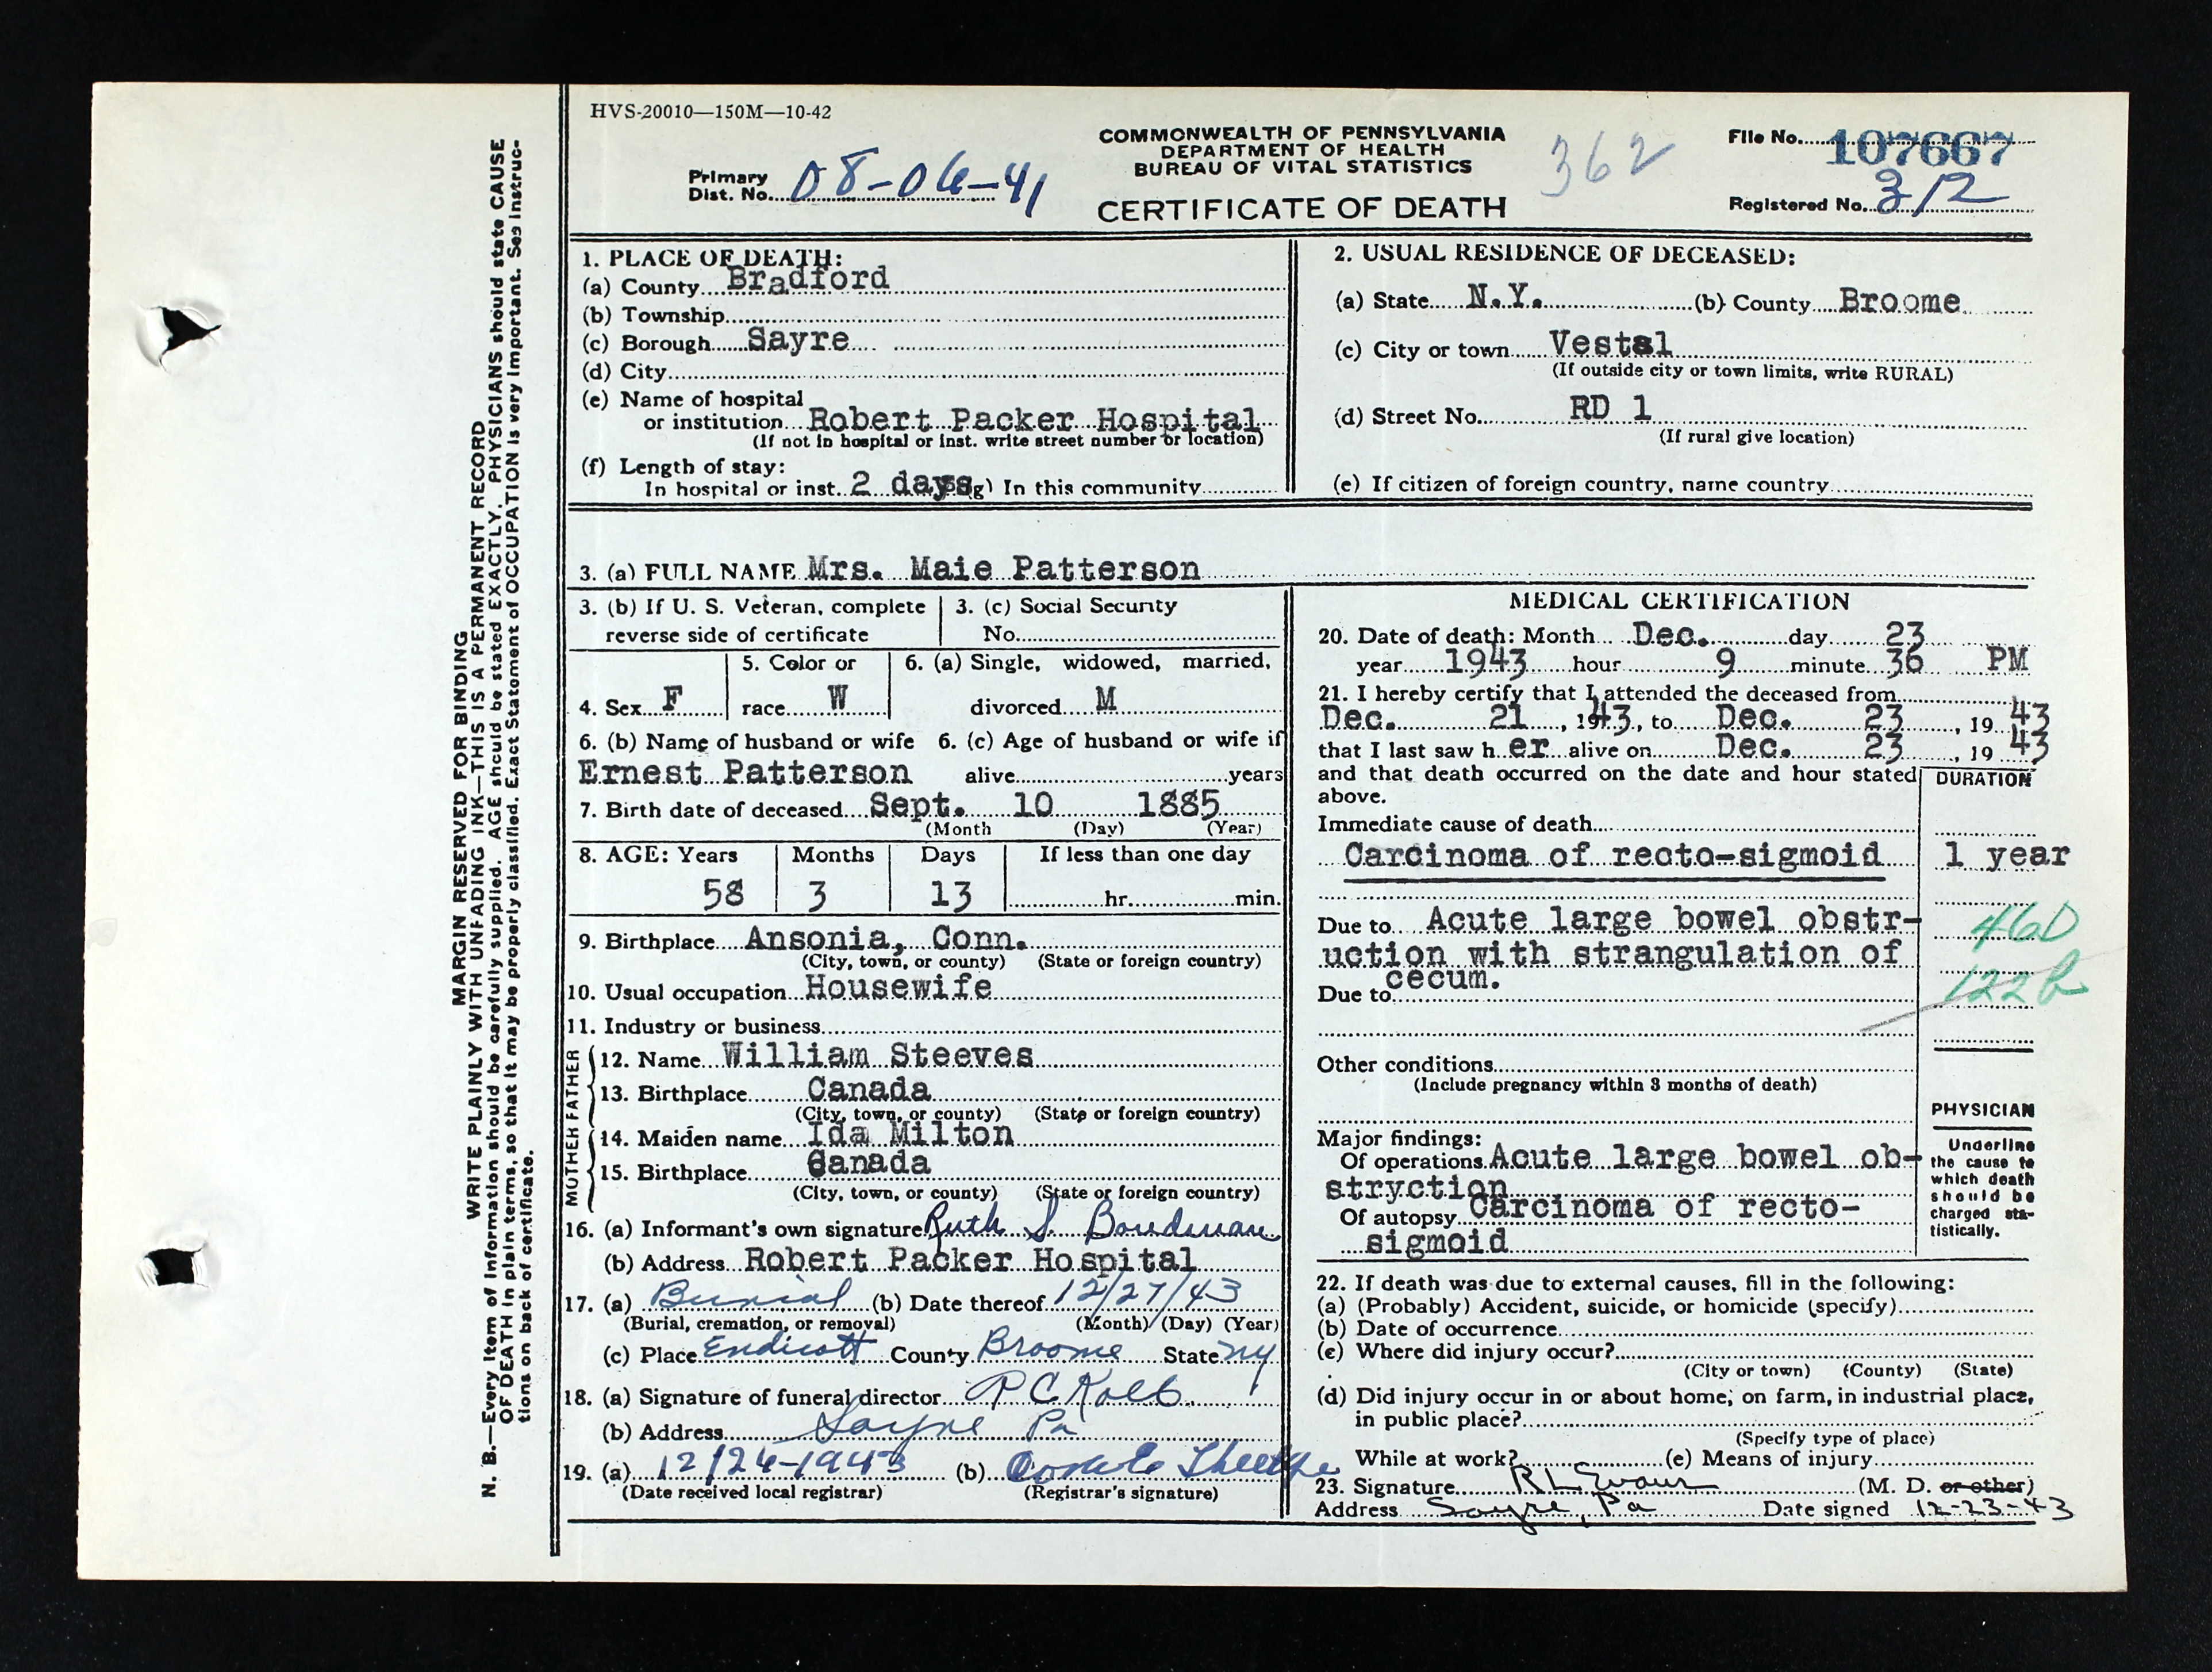 HVS-20010—150M—10-42
COMMONWEALTH OF PENNSYLVANIA
DEPARTMENT OF HEALTH
BUREAU OF VITAL STATISTICS
CERTIFICATE OF DEATH
362
Primary
Dist. No. 08-06-41
File No. 107667
Registered No. 312
MARGIN RESERVED FOR BINDING
WRITE PLAINLY WITH UNFADING INK—THIS IS A PERMANENT RECORD
N. B.—Every item of information should be carefully supplied. AGE should be stated EXACTLY. PHYSICIANS should state CAUSE
OF DEATH in plain terms, so that it may be properly classified. Exact Statement of OCCUPATION is very important. See instruc-
tions on back of certificate.
1. PLACE OF DEATH:
(a) County Bradford
(b) Township
(c) Borough Sayre
(d) City
(e) Name of hospital
or institution Robert Packer Hospital
(If not in hospital or inst. write street number or location)
(f) Length of stay:
In hospital or inst. 2 days (g) In this community
2. USUAL RESIDENCE OF DECEASED:
(a) State N.Y. (b) County Broome
(c) City or town Vestal
(If outside city or town limits, write RURAL)
(d) Street No. RD 1
(If rural give location)
(e) If citizen of foreign country, name country
3. (a) FULL NAME Mrs. Maie Patterson
3. (b) If U. S. Veteran, complete
reverse side of certificate
3. (c) Social Security
No.
4. Sex F
5. Color or
race W
6. (a) Single, widowed, married,
divorced M
6. (b) Name of husband or wife
Ernest Patterson
6. (c) Age of husband or wife if
alive years
7. Birth date of deceased Sept. 10 1885
(Month (Day) (Year)
8. AGE: Years Months Days If less than one day
58 3 13 hr. min.
9. Birthplace Ansonia, Conn.
(City, town, or county) (State or foreign country)
10. Usual occupation Housewife
11. Industry or business
FATHER
12. Name William Steeves
13. Birthplace Canada
(City, town, or county) (State or foreign country)
MOTHER
14. Maiden name Ida Milton
15. Birthplace Canada
(City, town, or county) (State or foreign country)
16. (a) Informant's own signature Ruth S.
(b) Address Robert Packer Hospital
17. (a) Burial (b) Date thereof 12/27/43
(Burial, cremation, or removal) (Month) (Day) (Year)
(c) Place Endicott County Broome State NY
18. (a) Signature of funeral director P C Kolb
(b) Address Sayre Pa
19. (a) 12/24-1943 (b)
(Date received local registrar) (Registrar's signature)
MEDICAL CERTIFICATION
20. Date of death: Month Dec. day 23
year 1943 hour 9 minute 36 PM
21. I hereby certify that I attended the deceased from
Dec. 21, 1943, to Dec. 23, 19 43
that I last saw h er alive on Dec. 23, 19 43
and that death occurred on the date and hour stated
above.
DURATION
Immediate cause of death
Carcinoma of recto-sigmoid 1 year
Due to Acute large bowel obstr-
uction with strangulation of
cecum.
Due to
46D
122b
Other conditions
(Include pregnancy within 3 months of death)
Major findings:
Of operations Acute large bowel ob-
stryction
Of autopsy Carcinoma of recto-
sigmoid
PHYSICIAN
Underline
the cause to
which death
should be
charged sta-
tistically.
22. If death was due to external causes, fill in the following:
(a) (Probably) Accident, suicide, or homicide (specify)
(b) Date of occurrence
(c) Where did injury occur?
(City or town) (County) (State)
(d) Did injury occur in or about home, on farm, in industrial place,
in public place?
(Specify type of place)
While at work? (e) Means of injury
23. Signature R L Evans (M. D. or other)
Address Sayre, Pa Date signed 12-23-43